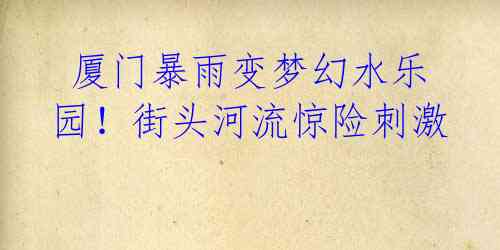 厦门暴雨变梦幻水乐
园！街头河流惊险刺激